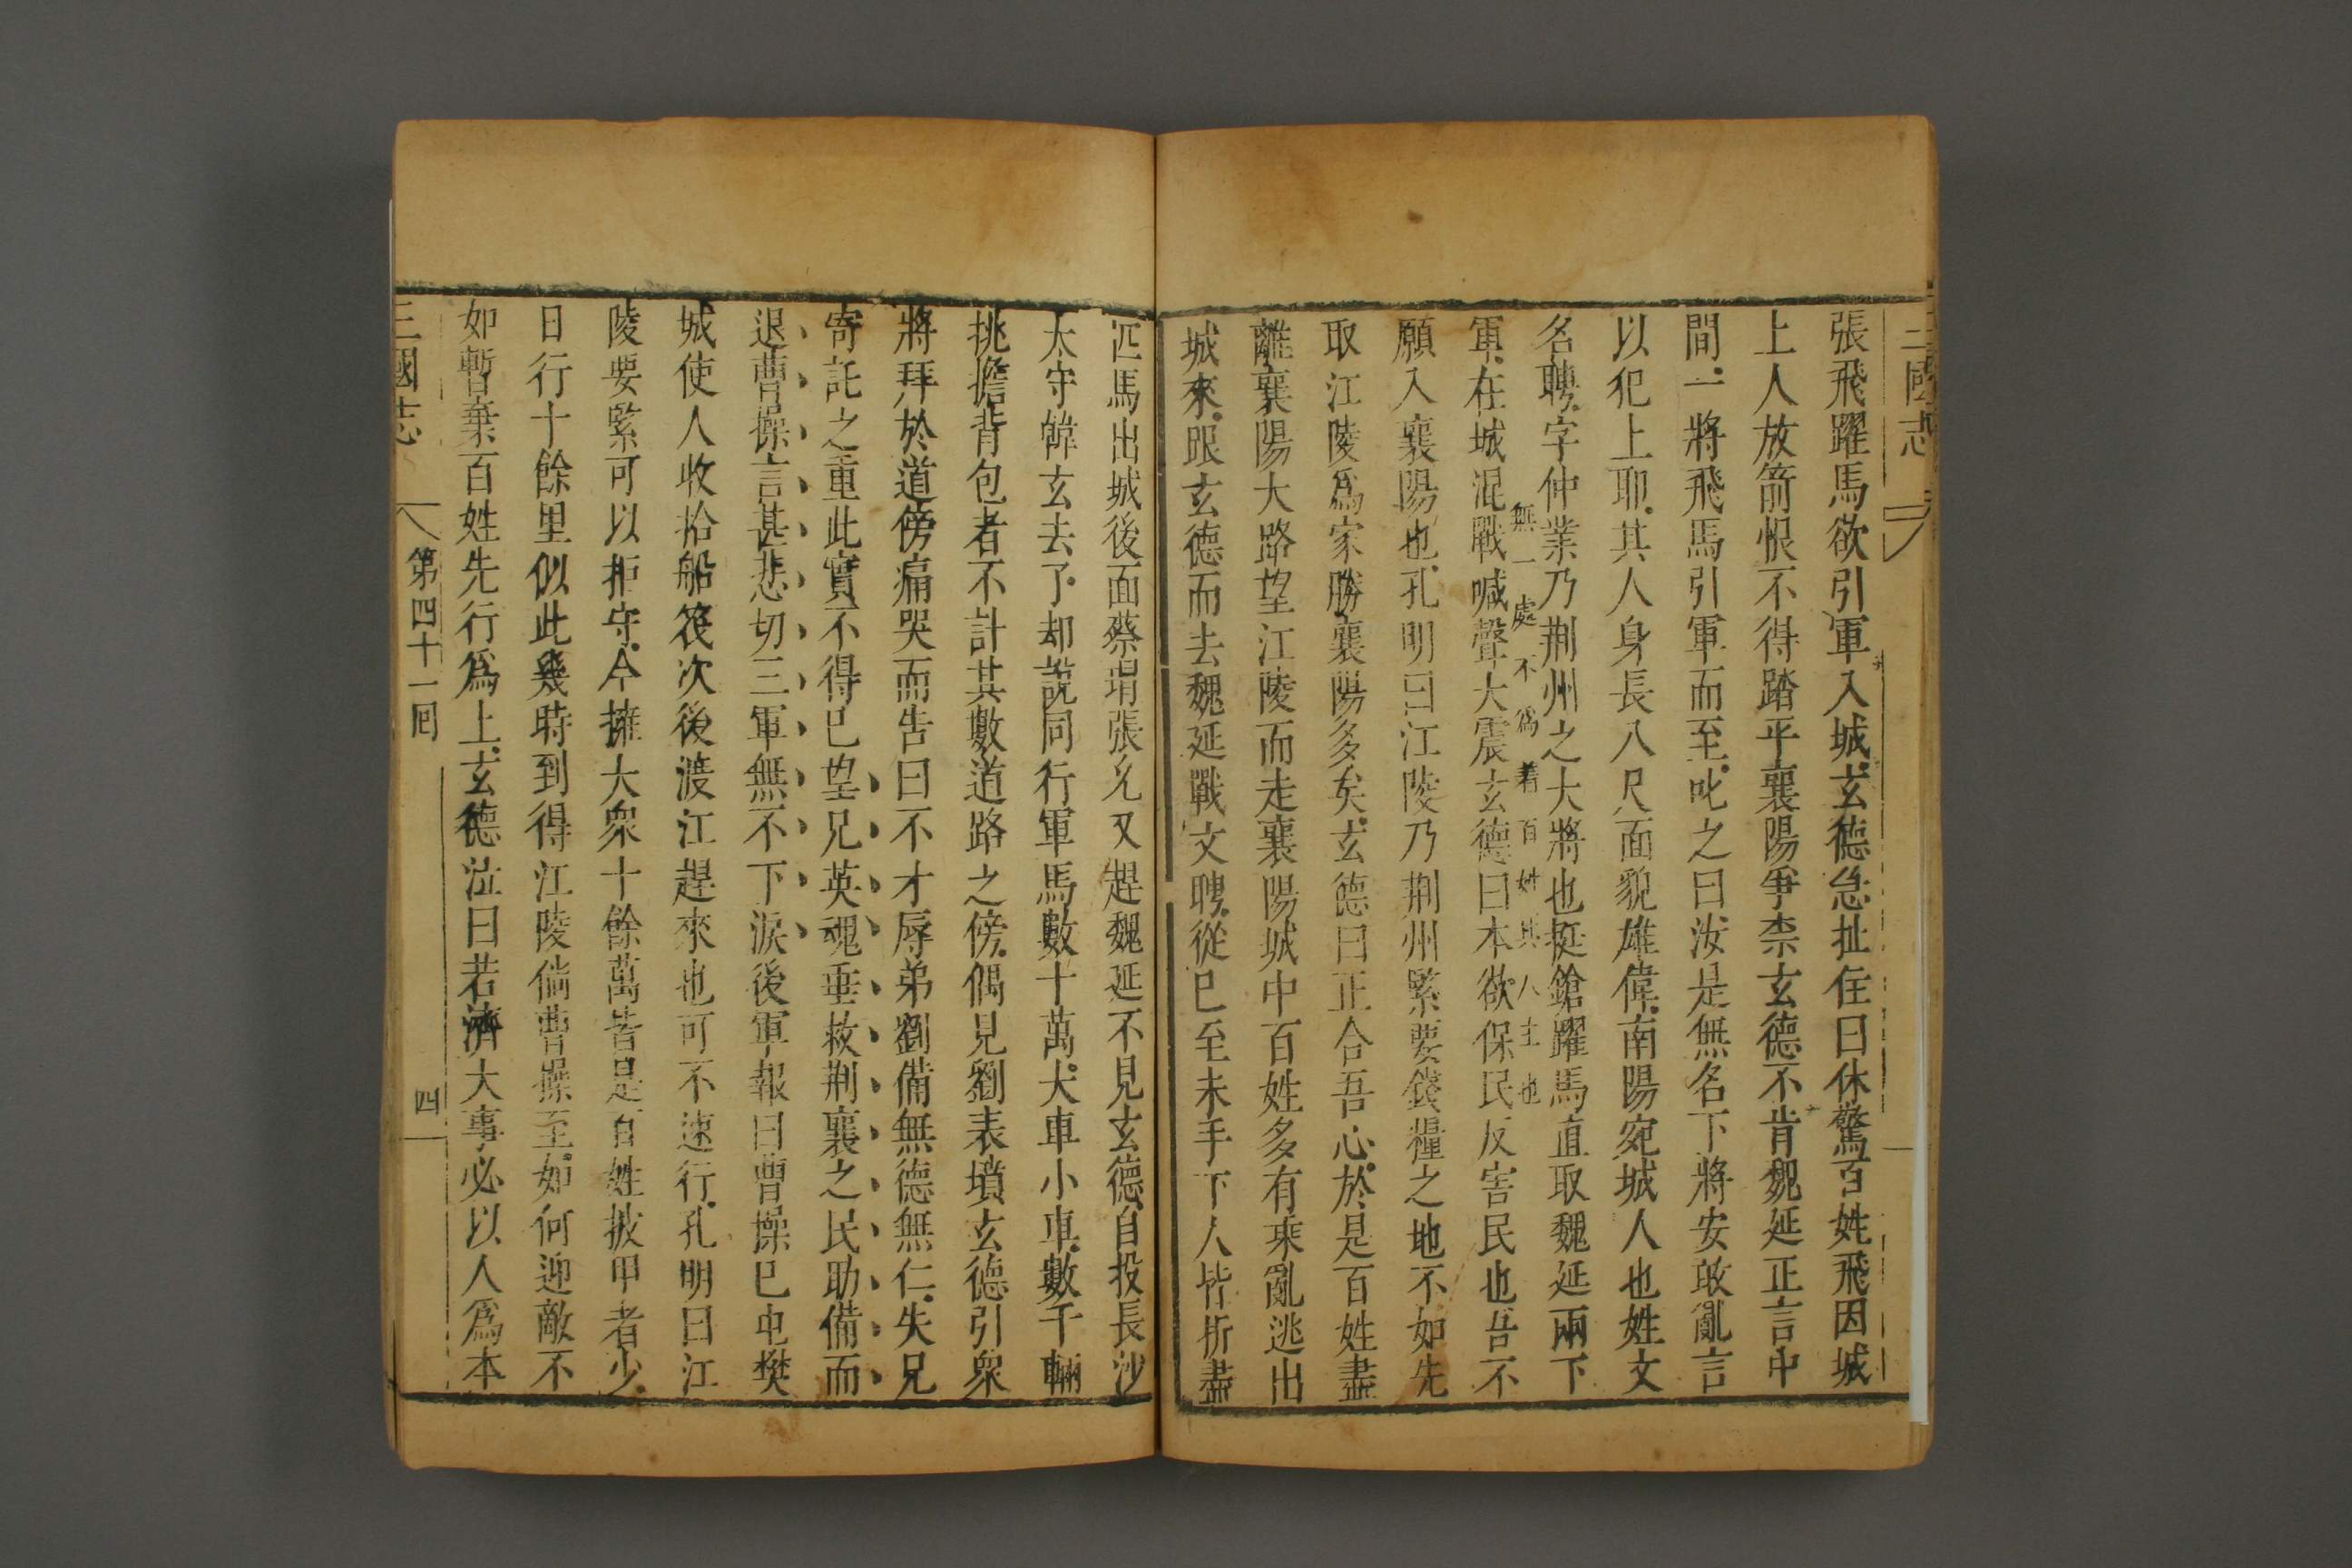 三國志
張飛躍馬欲引軍入城玄德急扯住曰休驚百姓飛因城
上人放箭恨不得踏平襄陽爭柰玄德不肯魏延正言中
間一將飛馬引軍而至叱之曰汝是無名下將安敢亂言
以犯上耶其人身長八尺面貌雄偉南陽宛城人也姓文
名聘字仲業乃荆州之大將也挺鎗躍馬直取魏延兩下
無一處不爲着百姓其人主也
軍在城混戰喊聲大震玄德曰本欲保民反害民也吾不
願入襄陽也孔明曰江陵乃荆州緊要錢糧之地不如先
取江陵爲家勝襄陽多矣玄德曰正合吾心於是百姓盡
離襄陽大路望江陵而走襄陽城中百姓多有乘亂逃出
城來跟玄德而去魏延戰文聘從巳至未手下人皆折盡
匹馬出城後面蔡瑁張允又趕魏延不見玄德自投長沙
太守韓玄去了却說同行軍馬數十萬大車小車數千輛
挑擔背包者不計其數道路之傍偶見劉表墳玄德引衆
將拜於道傍痛哭而告曰不才辱弟劉備無德無仁失兄
寄託之重此實不得已望兄英魂垂救荆襄之民助備而
退曹操言甚悲切三軍無不下淚後軍報曰曹操已屯樊
城使人收拾船筏次後渡江趕來也可不速行孔明曰江
陵要緊可以拒守今擁大衆十餘萬皆是百姓披甲者少
日行十餘里似此幾時到得江陵倘曹操至如何迎敵不
如暫棄百姓先行爲上玄德泣曰若濟大事必以人爲本
三國志
第四十一回
四